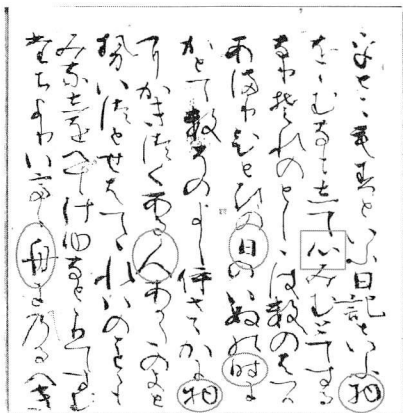 をとこもすといふ日記といふ物
をゝむなもして心みむとてする
なりそれのとしのしはすのはつか
あまりひとひの日のいぬの時に
かとてすそのよしいさゝかに物
にかきつくある人あかたのよと
せいつとせはてゝれいのことゝも
みなしをへてけゆなとゝりてすむ
たちよりいてゝ舟にのるへき